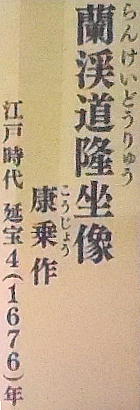 らんけいどうりゅう
蘭渓道隆坐像
こうじょう
康乗作
江戸時代 延宝4(1676)年